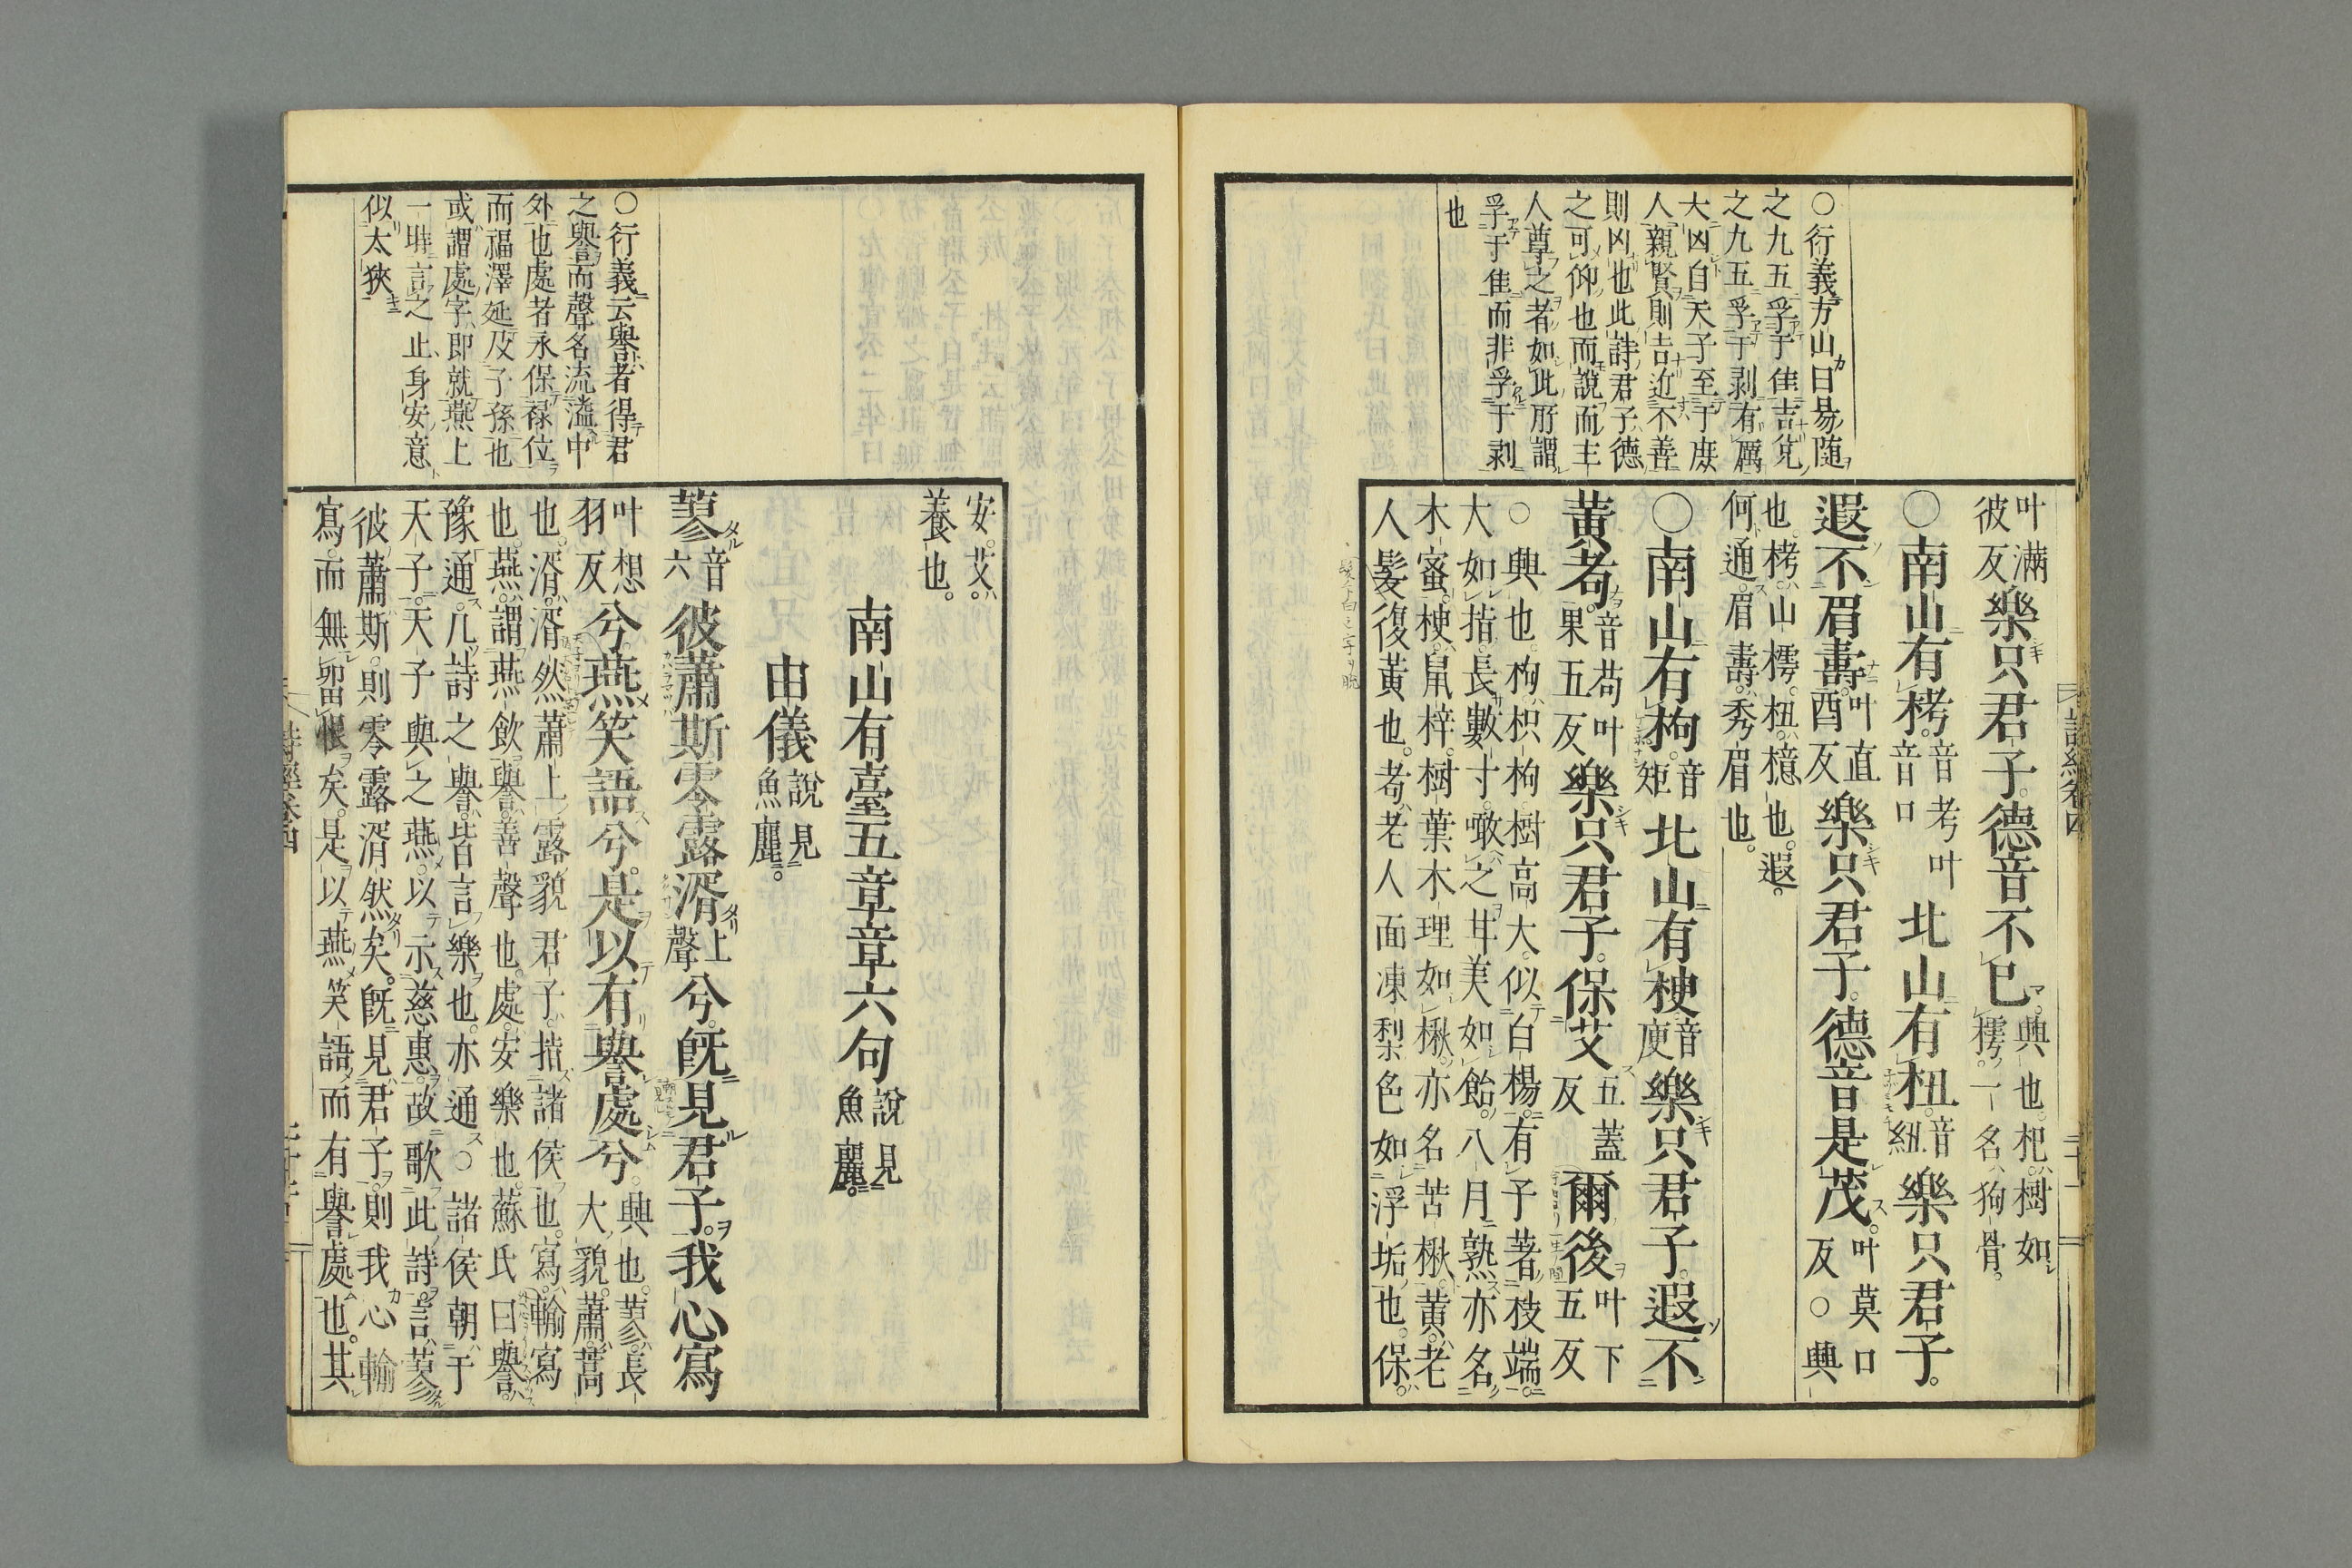 ○衍義方山曰易隨
之九五孚于佳吉兌
之九五孚于剥有厲
大凶自天子至于庻
人親賢則吉近不善
則凶也此詩君子德
之可仰也而說而主
人尊之者如此所謂
孚于佳而非孚于剥
也
叶滿彼反樂只君子。德音不已。興也。杞。樹如樗。一名狗骨。
○南山有栲。音考叶音口北山有杻。音紐樂只君子。
遐不眉壽。叶直酉反樂只君子。德音是茂。叶莫口反○興
也。栲。山樗。杻。檍也。遐。
何通。眉壽。秀眉也。
○南山有枸。音矩北山有楰。音庾樂只君子。遐不
黄耇。音苟叶果五反樂只君子。保艾五蓋反爾後。叶下五反
○興也。枸。枳枸。樹高大。似白楊。有子著枝端。
大如指。長數寸。噉之甘美如飴。八月熟。亦名
木蜜。楰。鼠梓。樹葉木理如楸。亦名苦楸。黄。老
人髮復黄也。耇。老人面凍梨色如浮垢也。保。
○衍義云譽者得君
之譽而聲名流溢中
外也處者永保禄位
而福澤延及子孫也
或謂處字即就燕上
一時言之止身安意
似太狹
安。艾。
養也。
南山有臺五章章六句說見魚麗。
由儀說見魚麗。
蓼音六彼蕭斯。零露湑上聲兮。旣見君子。我心寫
叶想羽反兮。燕笑語兮。是以有譽處兮。興也。蓼。長大貌。蕭。蒿
也。湑。湑然蕭上露貌。君子。指諸侯也。寫。輸寫
也。燕。謂燕飲。譽。善聲也。處。安樂也。蘇氏曰譽。
豫通。凡詩之譽。皆言樂也。亦通。○諸侯朝于
天子。天子與之燕。以示慈惠。故歌此詩。言蓼
彼蕭斯。則零露湑然矣。旣見君子。則我心輸
寫。而無留恨矣。是以燕笑語而有譽處也。其